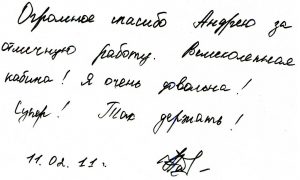 Огромное спасибо Андрею за
отличную работу. Великолепная
кабина! Я очень довольна!
Супер! Так держать!
11.02.11г.